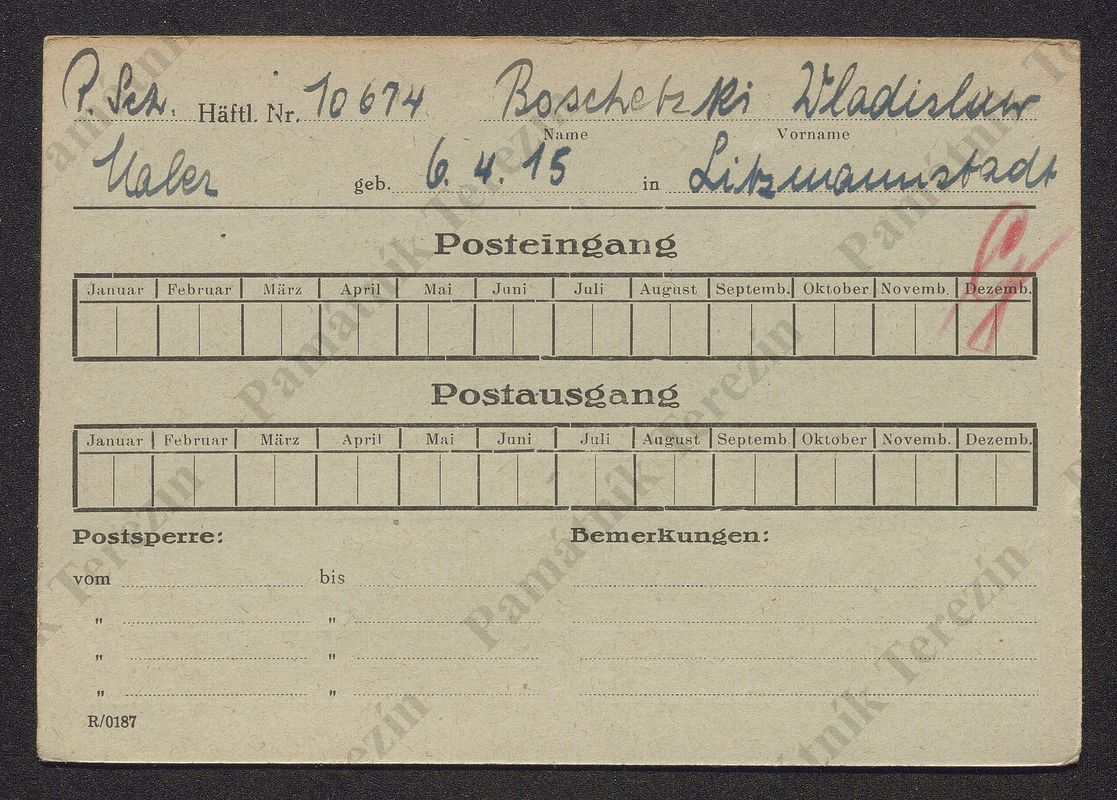 P. Sch. Häftl. Nr. 10674 Boschetzki Wladislaw
Name Vorname
Maler geb. 6. 4. 15 in Litzmannstadt
Posteingang
Januar Februar März April Mai Juni Juli August Septemb. Oktober Novemb. Dezemb.
Postausgang
Januar Februar März April Mai Juni Juli August Septemb Oktober Novemb. Dezemb.
Postsperre: Bemerkungen:
vom bis
" "
" "
" "
R/0187
Památník Terezín